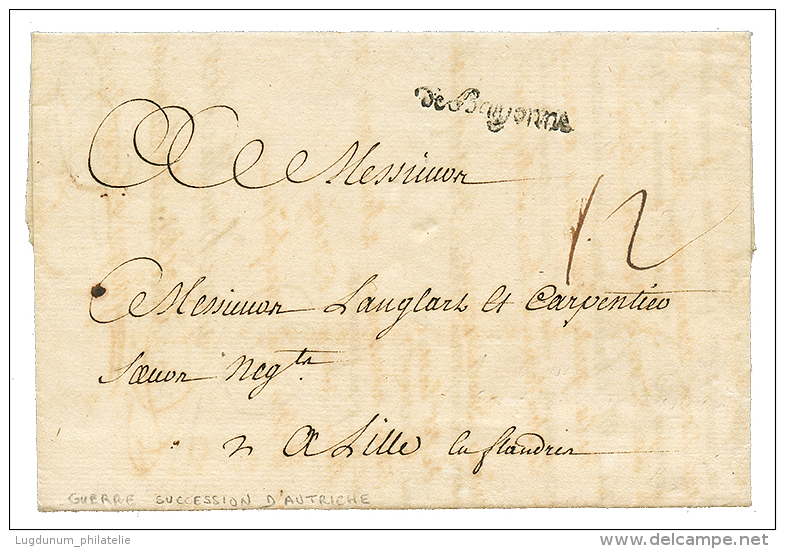 de Bayonne
Messieurs
12
Messieurs Langlart et Carpentier
Negts
A Lille en flandres
GUERRE SUCCESSION D'AUTRICHE
Lugdunum_philatelie
www.delcampe.net